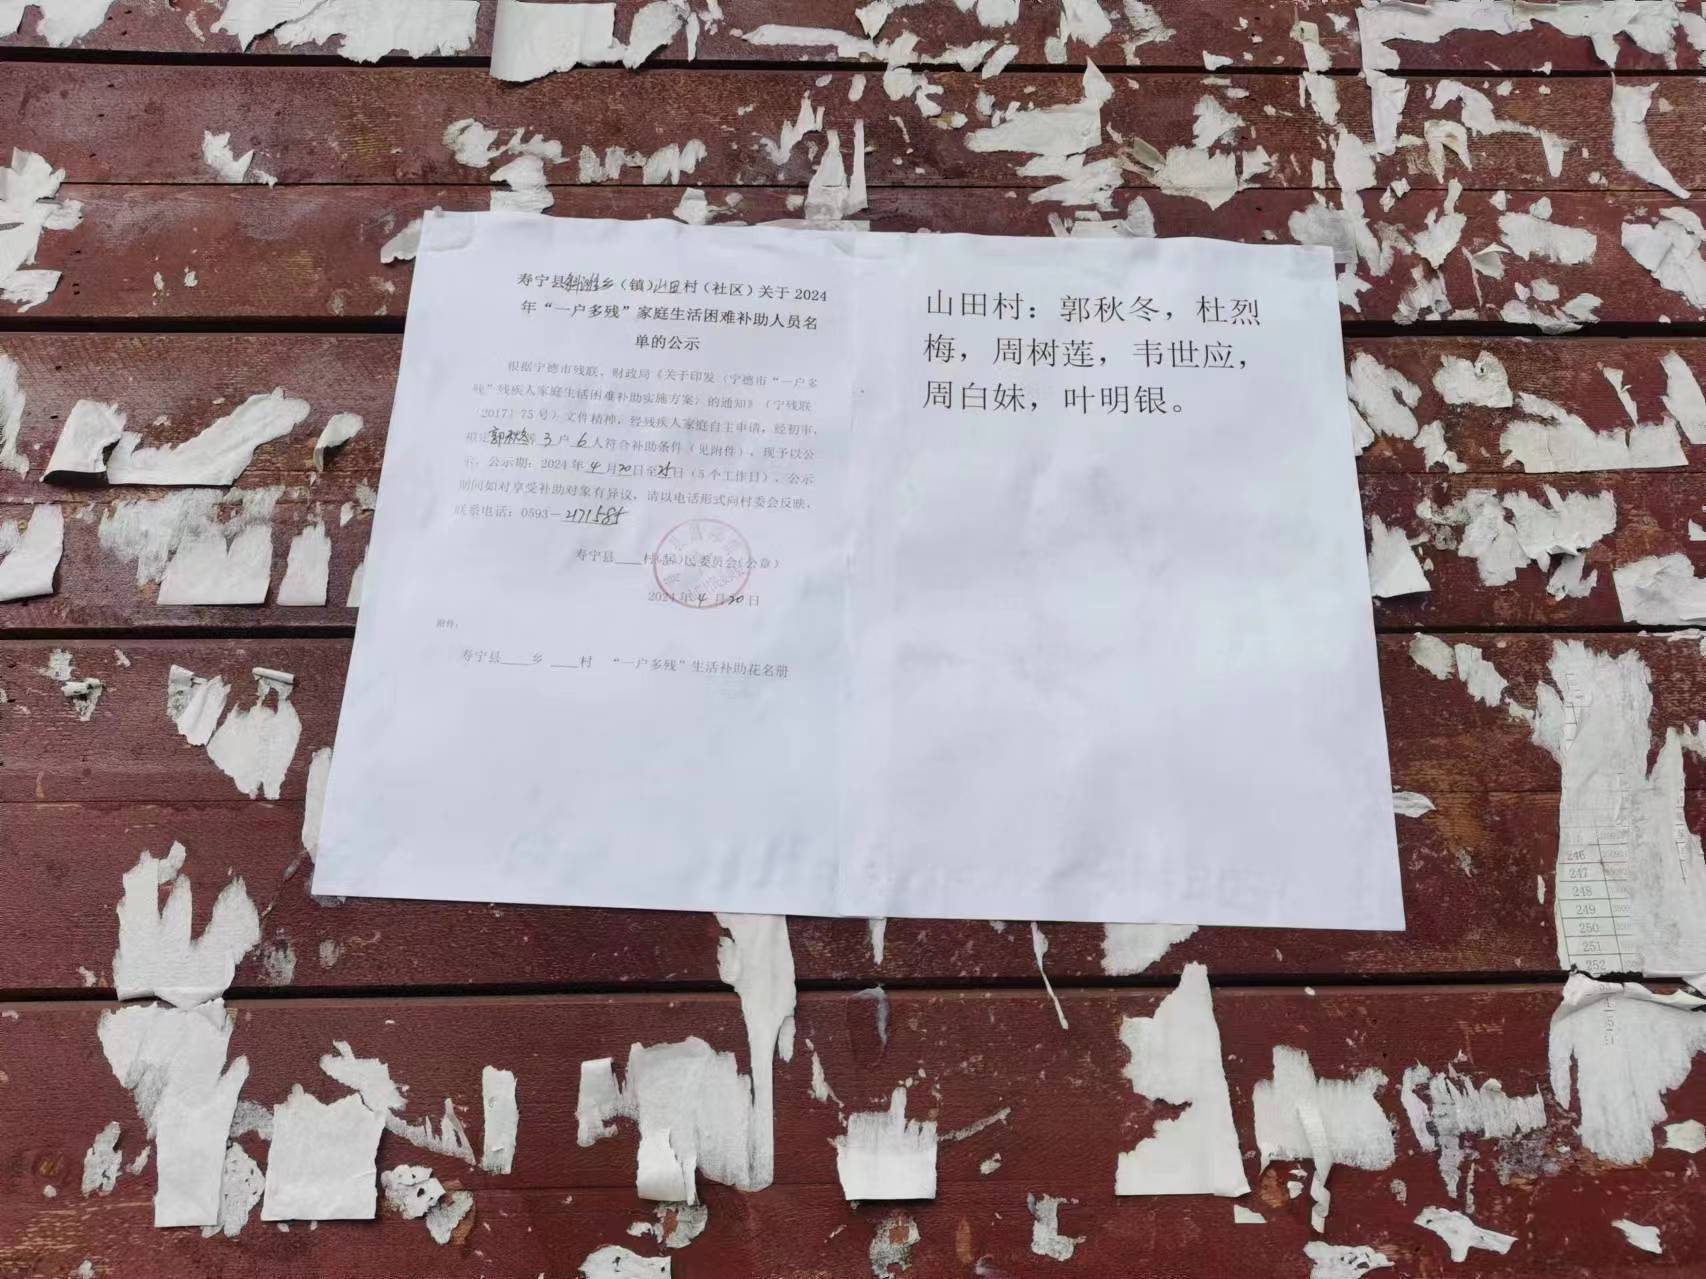 寿宁县斜滩乡（镇）山田村（社区）关于 2024
年“一户多残”家庭生活困难补助人员名
单的公示
根据宁德市残联、财政局《关于印发〈宁德市“一户多
残”残疾人家庭生活困难补助实施方案〉的通知》（宁残联
〔2017〕75号）文件精神，经残疾人家庭自主申请，经初审，
拟定郭秋冬等 3 户 6 人符合补助条件（见附件），现予以公
示。公示期：2024 年 4 月20日至25日（5 个工作日）。公示
期间如对享受补助对象有异议，请以电话形式向村委会反映。
联系电话：0593－2171585
寿宁县____村（居）民委员会（公章）
2024 年 4 月 20 日
附件：
寿宁县____乡 ____村 “一户多残”生活补助花名册
山田村：郭秋冬，杜烈
梅，周树莲，韦世应，
周白妹，叶明银。
246
247
248
249
250
251
252